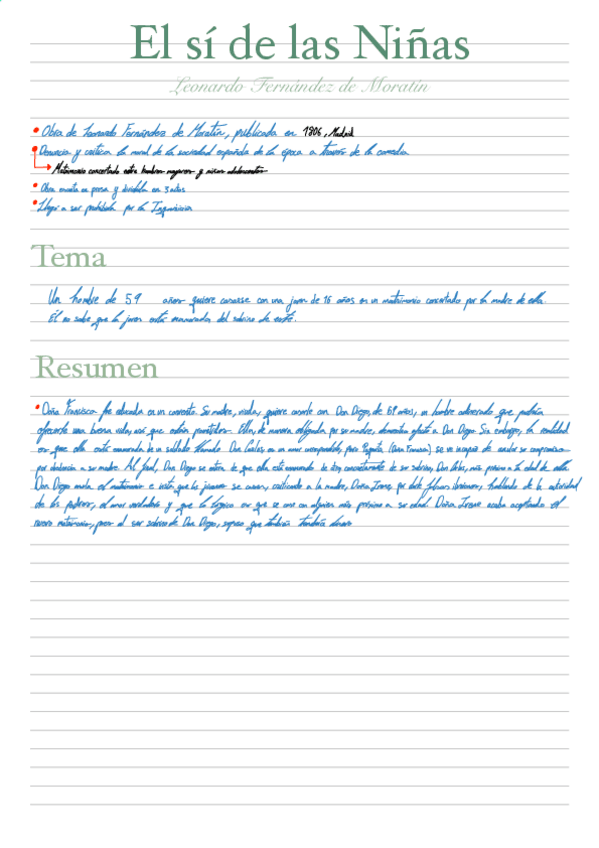 El sí de las Niñas
Leonardo Fernández de Moratín
• Obra de Leonardo Fernández de Moratín, publicada en 1806, Madrid
• Denuncia y critica la moral de la sociedad española de la época a través de la comedia
Matrimonio concertado entre hombres mayores y niñas adolescentes
• Obra escrita en prosa y dividida en 3 actos
• Llegó a ser prohibida por la Inquisición
Tema
Un hombre de 59 años quiere casarse con una joven de 16 años en un matrimonio concertado por la madre de ella.
Él no sabe que la joven está enamorada del sobrino de este.
Resumen
• Doña Francisca fue educada en un convento. Su madre, viuda, quiere casarla con Don Diego, de 59 años, un hombre adinerado que podría
ofrecerle una buena vida, así que están Ella, de manera obligada por su madre, demuestra afecto a Don Diego. Sin embargo, la realidad
es que ella está enamorada de un soldado llamado Don Carlos, es un amor correspondido, pero Paquita (Doña Francisca) se ve incapaz de anular su compromiso
por obediencia a su madre. Al final, Don Diego se entera de que ella está enamorada de concretamente de su sobrino, Don Carlos, más próximo a la edad de ella.
Don Diego anula el matrimonio e insta que los jóvenes se casen, criticando a la madre, Doña Irene, por hablando de la autoridad
de los padres, el amor verdadero y que lo lógico es que se case con alguien más próximo a su edad. Doña Irene acaba aceptando el
nuevo matrimonio, pues al ser sobrino de Don Diego, supuso que también tendría dinero